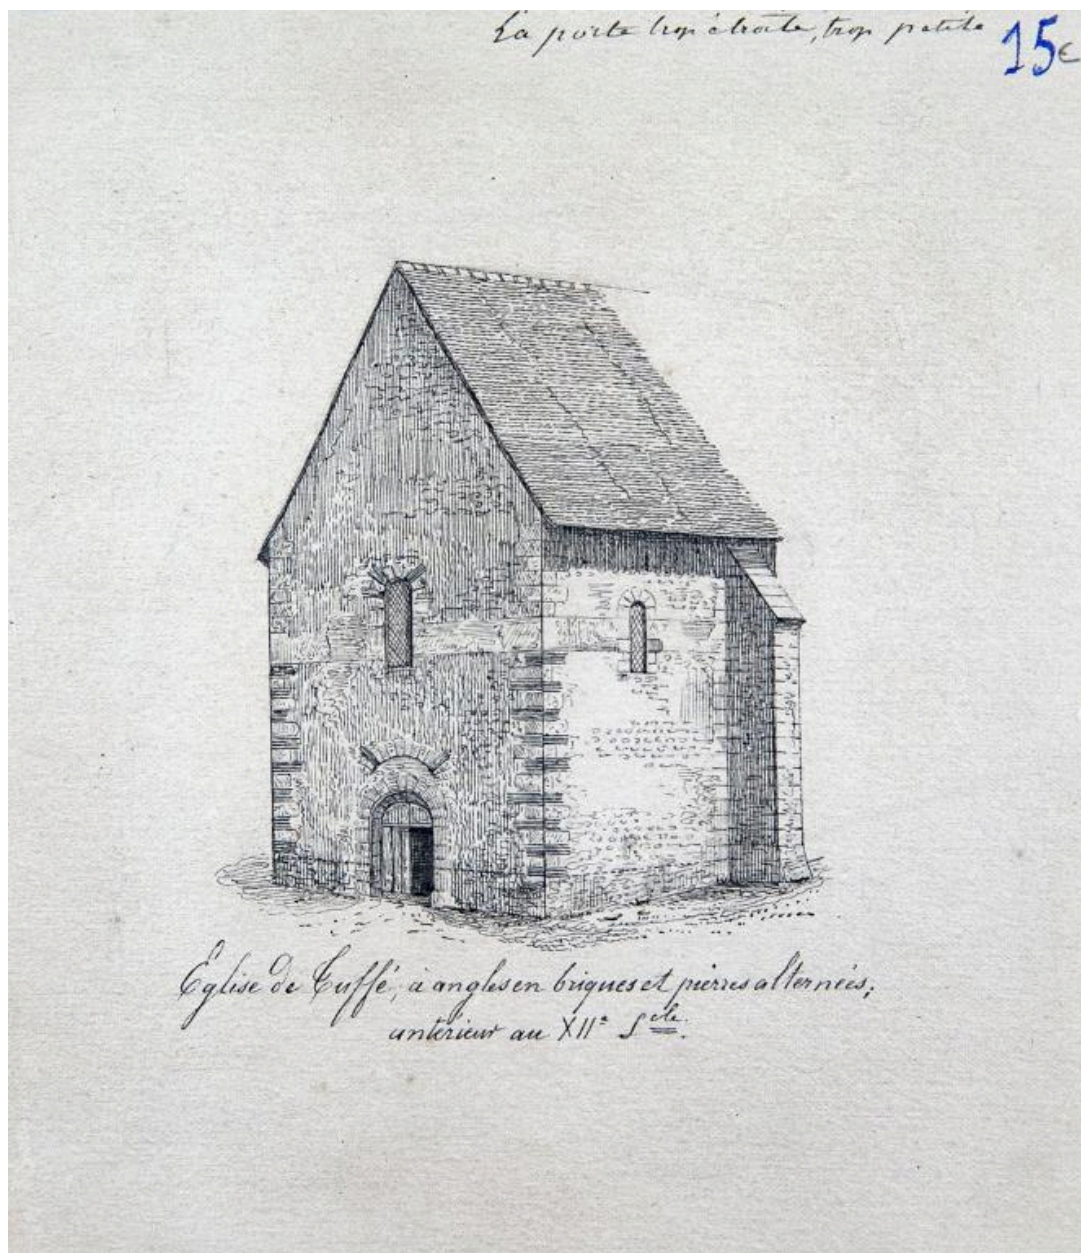 La porte trop étroite, trop petite
15€
Église de Tuffé, à angles en briques et pierres alternées;
antérieur au XIIe Scle.